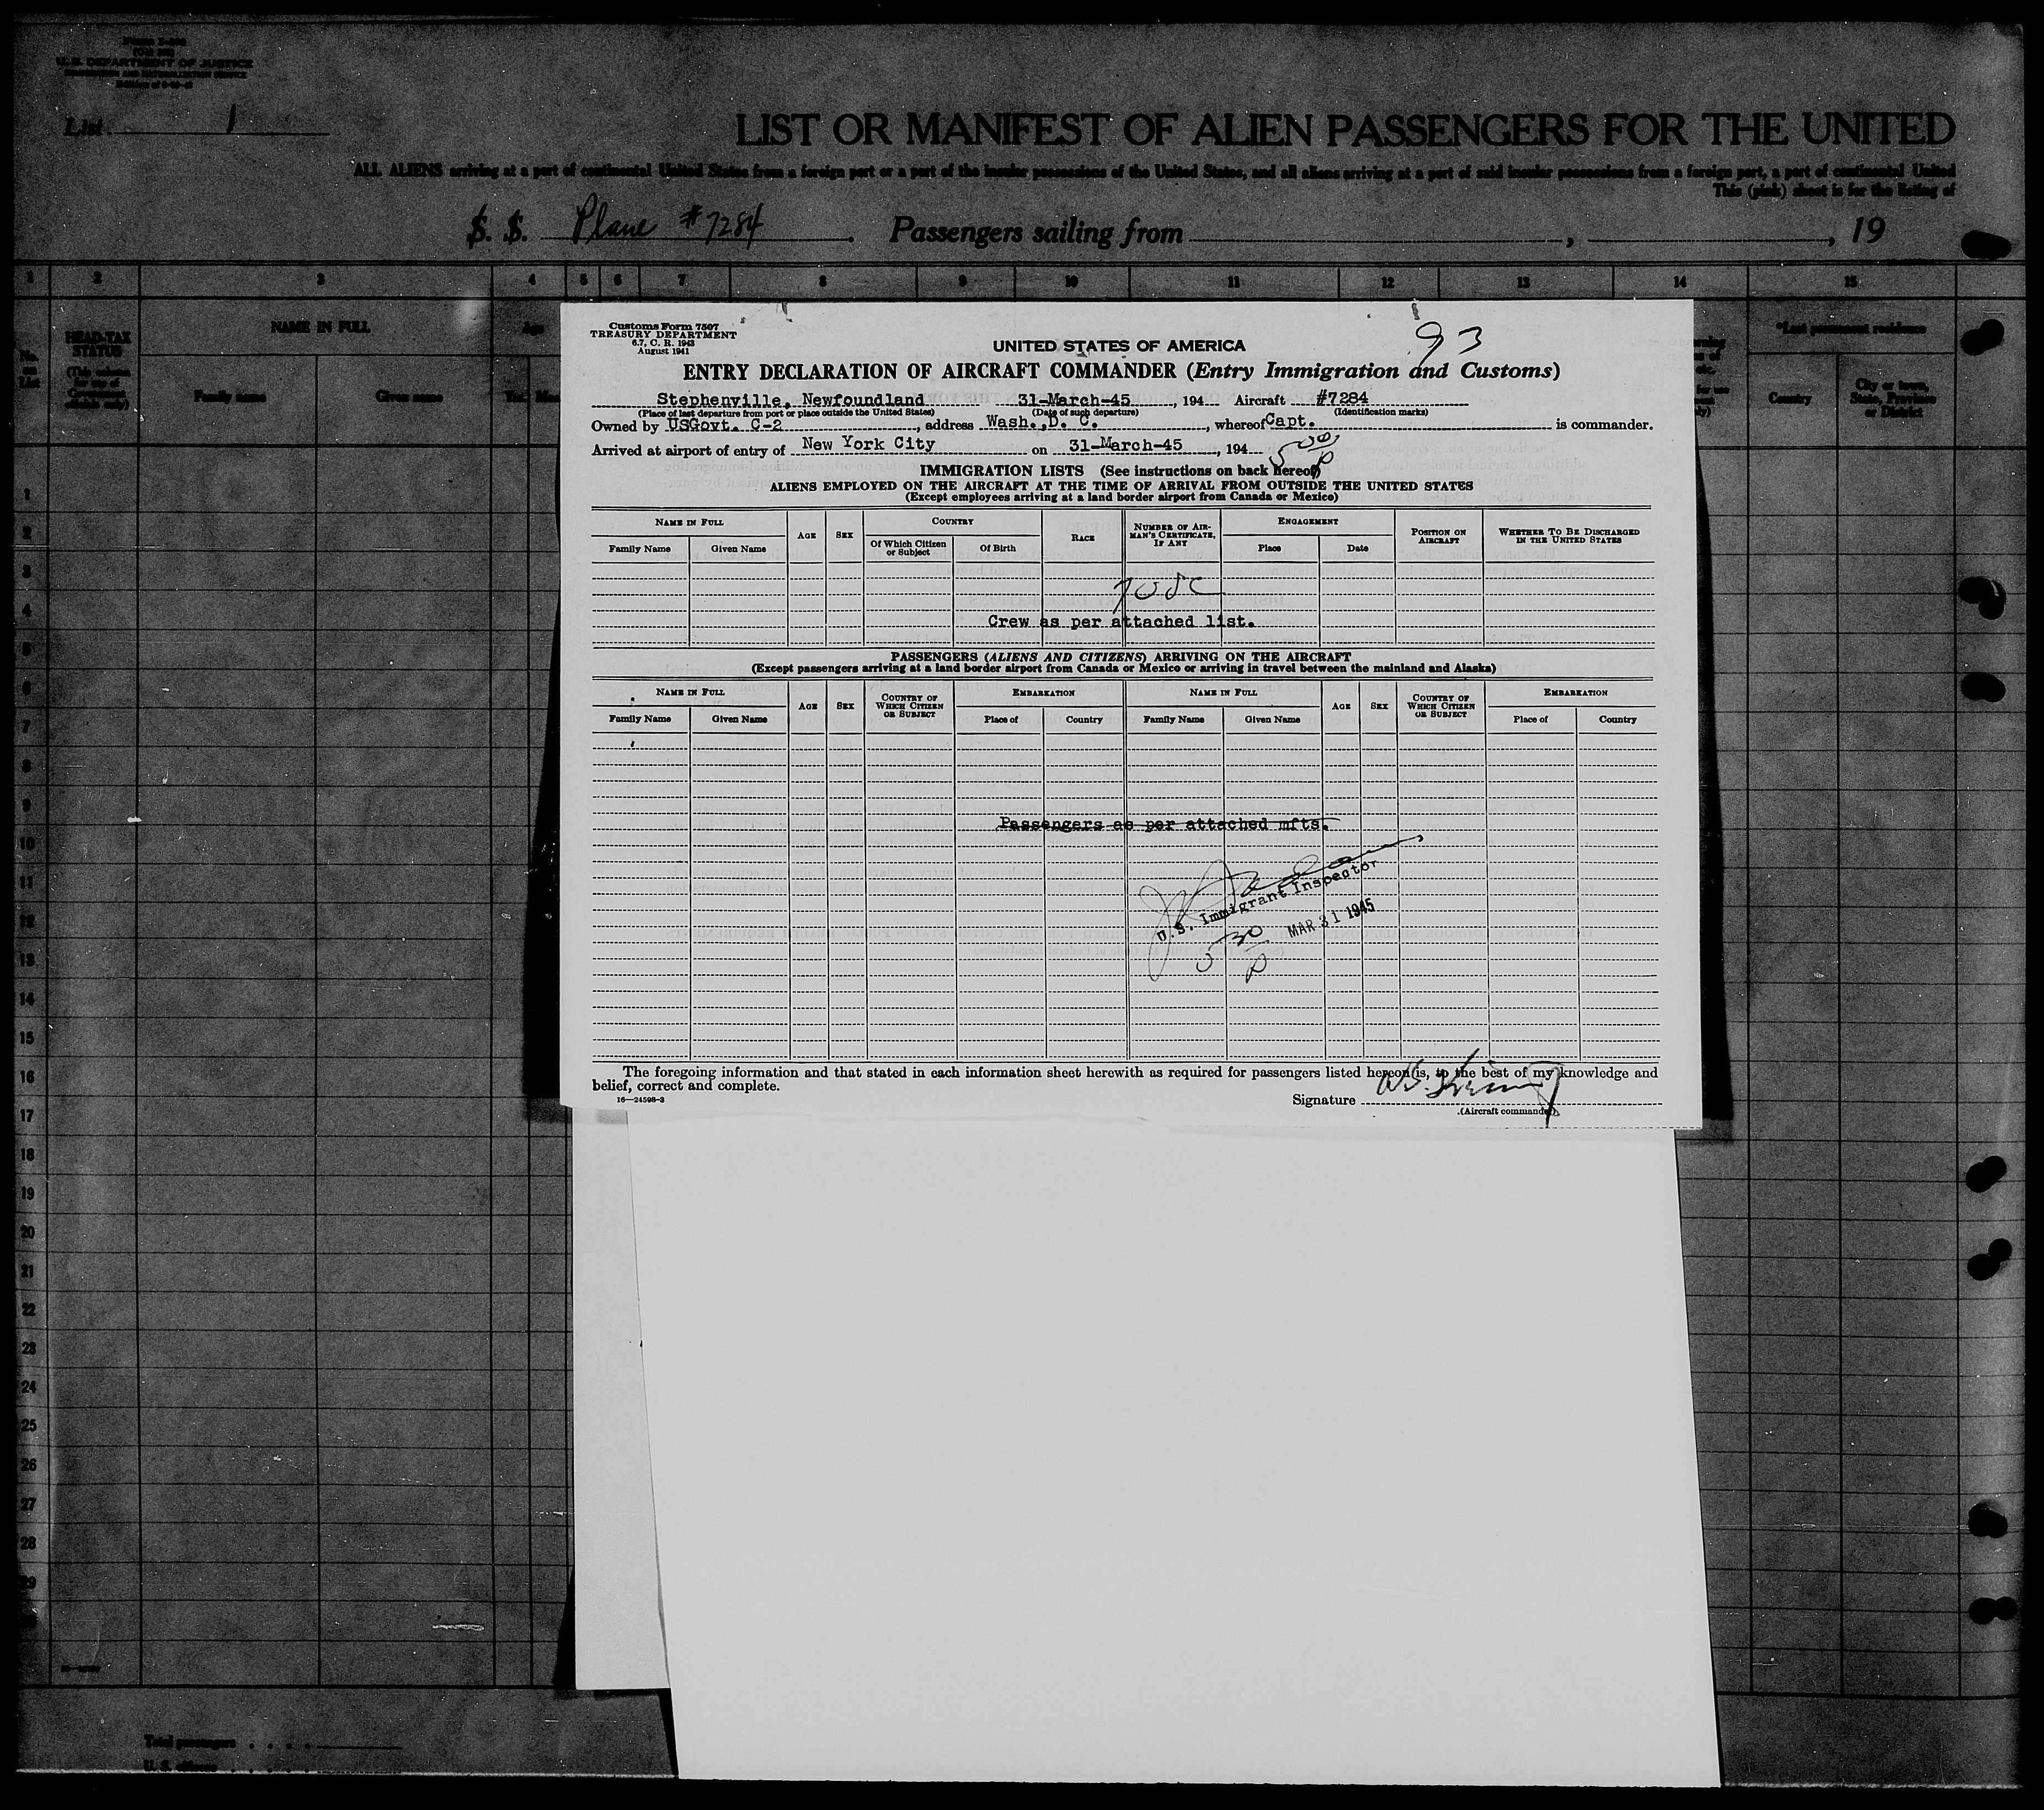 U. S. DEPARTMENT OF JUSTICE
IMMIGRATION AND NATURALIZATION SERVICE
List 1
LIST OR MANIFEST OF ALIEN PASSENGERS FOR THE UNITED
ALL ALIENS arriving at a port of continental United States from a foreign port or a port of the insular possessions of the United States, and all aliens arriving at a port of said insular possessions from a foreign port, a port of continental United
This (pink) sheet is for the listing of
S. S. Plane #7284 . Passengers sailing from , , 19
1 2 3 4 5 6 7 8 9 10 11 12 13 14 15
No. on List
HEAD-TAX STATUS
NAME IN FULL
Age
*Last permanent residence
Family name Given name
Country City or town, State, Province or District
Customs Form 7507
TREASURY DEPARTMENT
6.7, C. R. 1943
August 1941
93
UNITED STATES OF AMERICA
ENTRY DECLARATION OF AIRCRAFT COMMANDER (Entry Immigration and Customs)
Stephenville, Newfoundland 31-March-45, 194 Aircraft #7284
(Place of last departure from port or place outside the United States) (Date of such departure) (Identification marks)
Owned by USGovt. C-2, address Wash.,D. C., whereof Capt. is commander.
Arrived at airport of entry of New York City on 31-March-45, 194
5 00 P
IMMIGRATION LISTS (See instructions on back hereof)
ALIENS EMPLOYED ON THE AIRCRAFT AT THE TIME OF ARRIVAL FROM OUTSIDE THE UNITED STATES
(Except employees arriving at a land border airport from Canada or Mexico)
NAME IN FULL AGE SEX COUNTRY RACE NUMBER OF AIRMAN'S CERTIFICATE, IF ANY ENGAGEMENT POSITION ON AIRCRAFT WHETHER TO BE DISCHARGED IN THE UNITED STATES
Family Name Given Name Of Which Citizen or Subject Of Birth Place Date
Crew as per attached list.
PASSENGERS (ALIENS AND CITIZENS) ARRIVING ON THE AIRCRAFT
(Except passengers arriving at a land border airport from Canada or Mexico or arriving in travel between the mainland and Alaska)
NAME IN FULL AGE SEX COUNTRY OF WHICH CITIZEN OR SUBJECT EMBARKATION NAME IN FULL AGE SEX COUNTRY OF WHICH CITIZEN OR SUBJECT EMBARKATION
Family Name Given Name Place of Country Family Name Given Name Place of Country
Passengers as per attached mfts.
U.S. Immigrant Inspector
MAR 31 1945
5 30 P
The foregoing information and that stated in each information sheet herewith as required for passengers listed hereon is, to the best of my knowledge and
belief, correct and complete.
16—24598-3
Signature
(Aircraft commander)
1
2
3
4
5
6
7
8
9
10
11
12
13
14
15
16
17
18
19
20
21
22
23
24
25
26
27
28
29
Total passengers . . . .